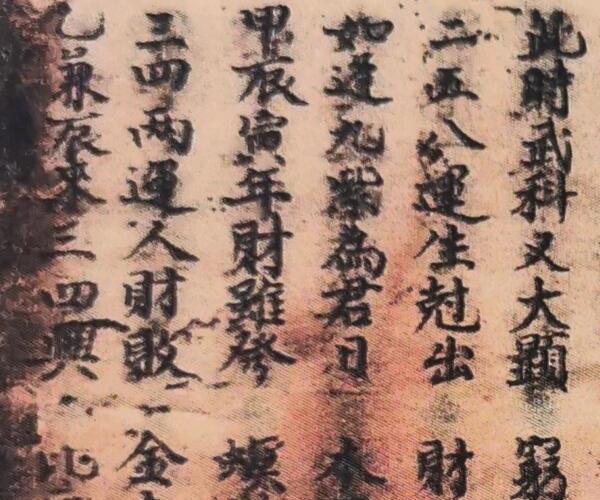 此時武科又大顯 窮
二五八運生尅出 財
如逢九紫為君日 本
甲辰寅年財雖發 螟
三四兩運人財敗 金
乙兼辰來三四興 比